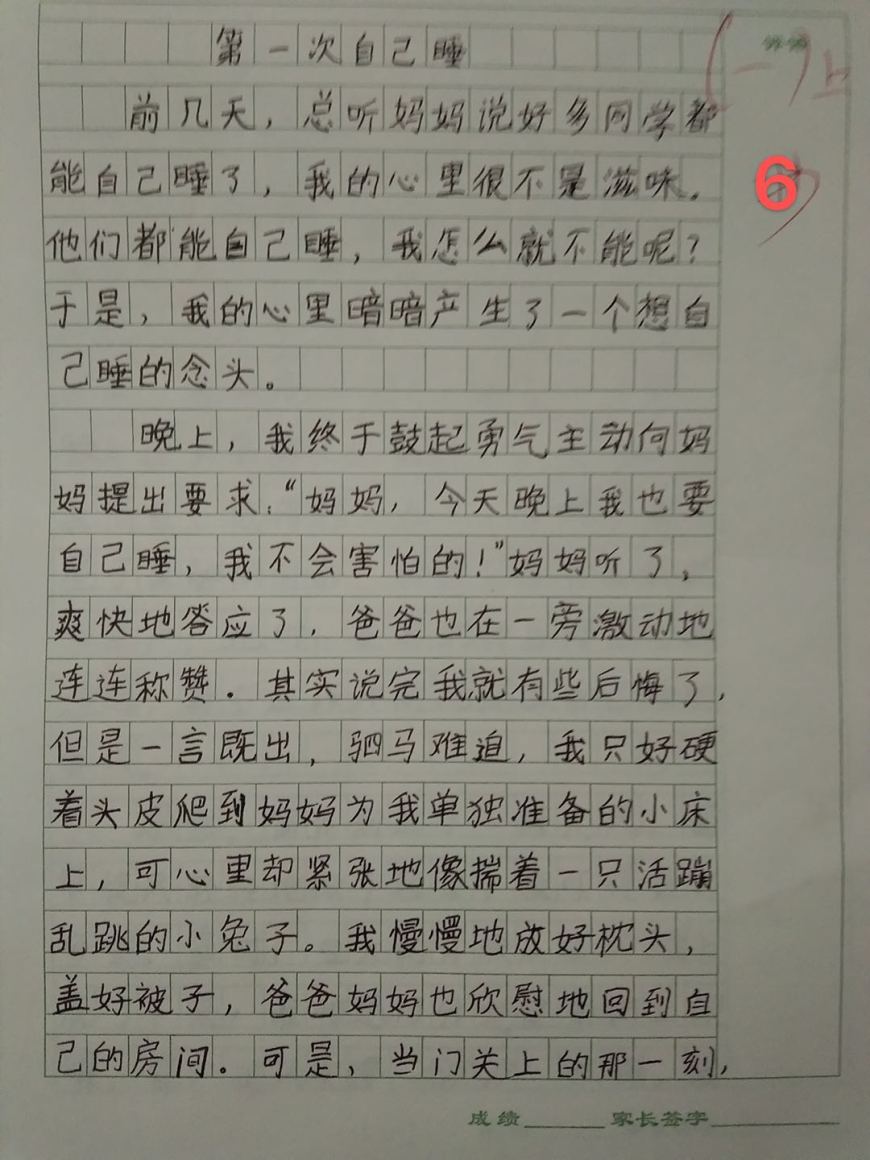 第一次自己睡
(一)上
前几天，总听妈妈说好多同学都
能自己睡了，我的心里很不是滋味。
6
他们都能自己睡，我怎么就不能呢？
于是，我的心里暗暗产生了一个想自
己睡的念头。
晚上，我终于鼓起勇气主动向妈
妈提出要求：“妈妈，今天晚上我也要
自己睡，我不会害怕的！”妈妈听了，
爽快地答应了，爸爸也在一旁激动地
连连称赞。其实说完我就有些后悔了，
但是一言既出，驷马难追，我只好硬
着头皮爬到妈妈为我单独准备的小床
上，可心里却紧张地像揣着一只活蹦
乱跳的小兔子。我慢慢地放好枕头，
盖好被子，爸爸妈妈也欣慰地回到自
己的房间。可是，当门关上的那一刻，
成绩 家长签字